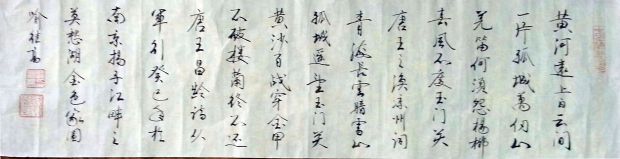 黄河遠上白云间
一片孤城萬仞山
羌笛何须怨楊柳
春風不度玉门关
唐王之涣凉州词
青海長雲暗雪山
孤城遥望玉门关
黄沙百战穿金甲
不破楼蘭终不还
唐王昌龄诗从
軍行癸巳年於
南京揚子江畔之
莫愁湖金色家园